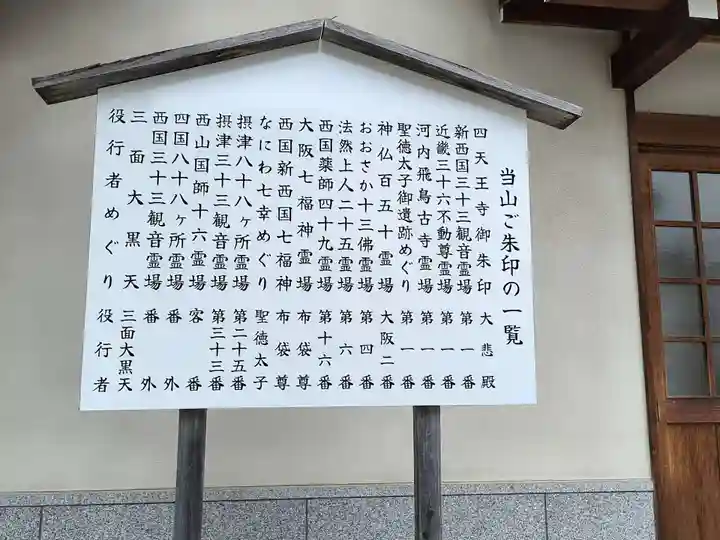 当山ご朱印の一覧
四天王寺御朱印 大悲殿
新西国三十三観音霊場 第一番
近畿三十六不動尊霊場 第一番
河内飛鳥古寺霊場 第一番
聖徳太子御遺跡めぐり 第一番
神仏百五十霊場 大阪二
おおさか十三佛霊場 第四番
法然上人二十五霊場 第六番
西国薬師四十九霊場 第十六番
大阪七福神霊場 布袋尊
西国新西国七福神 布袋尊
なにわ七幸めぐり 聖徳太子
摂津八十八ヶ所霊場 第二十五番
摂津三十三観音霊場 第三十三番
西山国師十六霊場 客番
四国八十八ヶ所霊場 番外
西国三十三観音霊場 番外
三面大黒天 三面大黒天
役行者めぐり 役行者